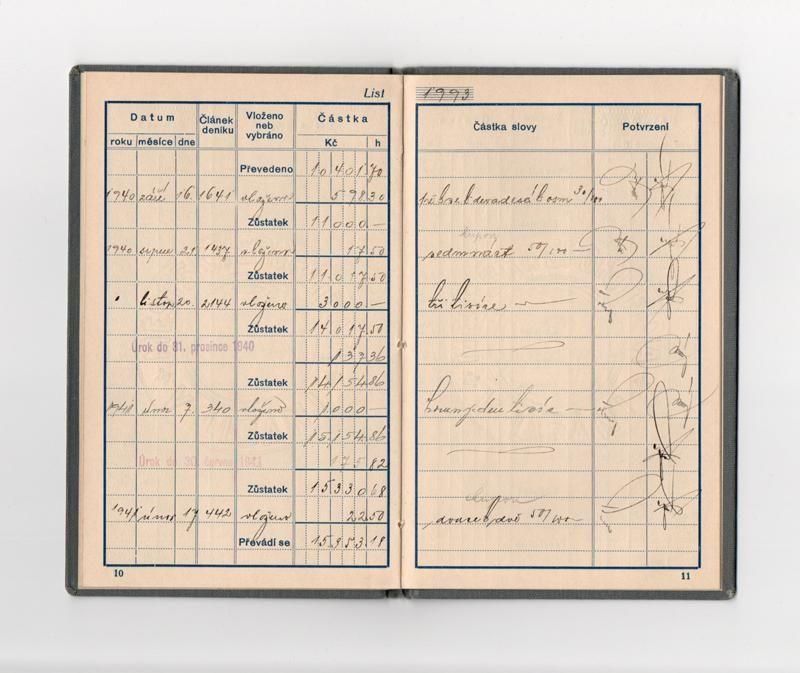 List 1993
Datum Článek deníku Vloženo neb vybráno Částka Částka slovy Potvrzení
roku měsíce dne Kč h
Převedeno 10401 70
1940 září 16. 1641 vloženo 598 30 30/100
Zůstatek 11000.—
1940 srpna 21. 1437 vloženo 17 50 kupon sedmnáct 50/100 —
Zůstatek 11017 50
listop 20. 2144 vloženo 3000 — tři tisíce —
Zůstatek 14017 50
Úrok do 31. prosince 1940
137 36
Zůstatek 14154 86
1941 únor 7. 340 vloženo 1000 — tisíc —
Zůstatek 15154 86
Úrok do 30. června 1941
175 82
Zůstatek 15330 68
1941 únor 17 442 vloženo 22 50 kupon dvacet dvě 50/100
Převádí se 15353 18
10 11